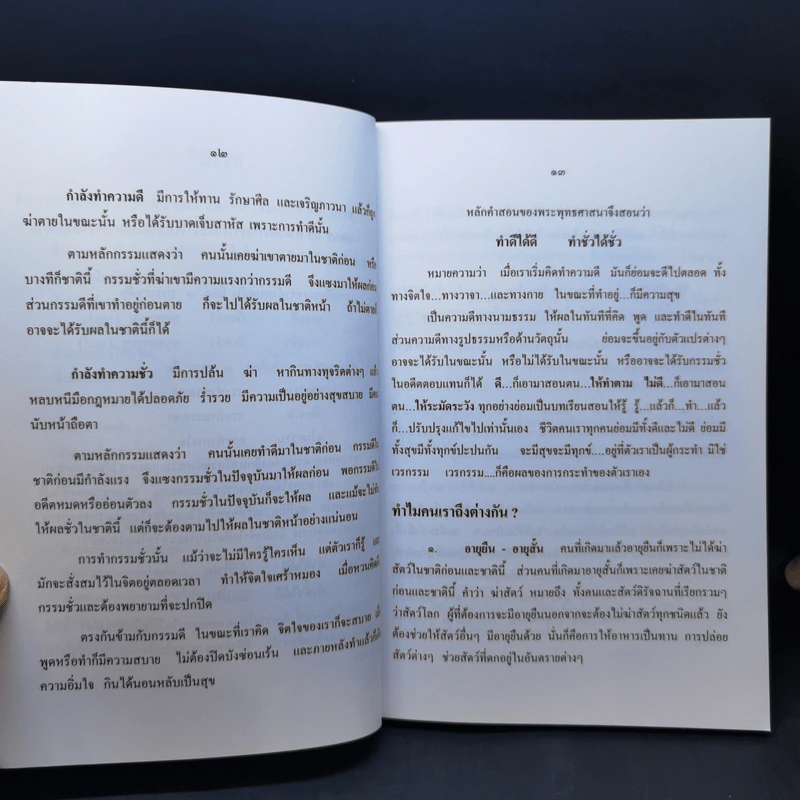 ๑๒
กำลังทำความดี มีการให้ทาน รักษาศีล และเจริญภาวนา แล้วก็ถูก
ฆ่าตายในขณะนั้น หรือได้รับบาดเจ็บสาหัส เพราะการทำดีนั้น
ตามหลักกรรมแสดงว่า คนนั้นเคยฆ่าเขาตายมาในชาติก่อน หรือ
บางทีก็ชาตินี้ กรรมชั่วที่ฆ่าเขามีความแรงกว่ากรรมดี จึงแซงมาให้ผลก่อน
ส่วนกรรมดีที่เขาทำอยู่ก่อนตาย ก็จะไปได้รับผลในชาติหน้า ถ้าไม่ตายก็
อาจจะได้รับผลในชาตินี้ก็ได้
กำลังทำความชั่ว มีการปล้น ฆ่า หากินทางทุจริตต่างๆ แล้ว
หลบหนีมือกฎหมายได้ปลอดภัย ร่ำรวย มีความเป็นอยู่อย่างสุขสบาย มีคน
นับหน้าถือตา
ตามหลักกรรมแสดงว่า คนนั้นเคยทำดีมาในชาติก่อน กรรมดีใน
ชาติก่อนมีกำลังแรง จึงแซงกรรมชั่วในปัจจุบันมาให้ผลก่อน พอกรรมดีใน
อดีตหมดหรืออ่อนตัวลง กรรมชั่วในปัจจุบันก็จะให้ผล และแม้จะไม่
ให้ผลชั่วในชาตินี้ แต่ก็จะต้องตามไปให้ผลในชาติหน้าอย่างแน่นอน
การทำกรรมชั่วนั้น แม้ว่าจะไม่มีใครรู้ใครเห็น แต่ตัวเราก็รู้ และ
มักจะสั่งสมไว้ในจิตอยู่ตลอดเวลา ทำให้จิตใจเศร้าหมอง เมื่อหวนคิดถึง
กรรมชั่วและต้องพยายามที่จะปกปิด
ตรงกันข้ามกับกรรมดี ในขณะที่เราคิด จิตใจของเราก็จะสบาย เมื่อ
พูดหรือทำก็มีความสบาย ไม่ต้องปิดบังซ่อนเร้น และภายหลังทำแล้วก็เกิด
ความอิ่มใจ กินได้นอนหลับเป็นสุข
๑๓
หลักคำสอนของพระพุทธศาสนาจึงสอนว่า
ทำดีได้ดี ทำชั่วได้ชั่ว
หมายความว่า เมื่อเราเริ่มคิดทำความดี มันก็ย่อมจะดีไปตลอด ทั้ง
ทางจิตใจ...ทางวาจา...และทางกาย ในขณะที่ทำอยู่...ก็มีความสุข
เป็นความดีทางนามธรรม ให้ผลในทันทีที่คิด พูด และทำดีในทันที
ส่วนความดีทางรูปธรรมหรือด้านวัตถุนั้น ย่อมจะขึ้นอยู่กับตัวแปรต่างๆ
อาจจะได้รับในขณะนั้น หรือไม่ได้รับในขณะนั้น หรืออาจจะได้รับกรรมชั่ว
ในอดีตตอบแทนก็ได้ ดี...ก็เอามาสอนตน...ให้ทำตาม ไม่ดี...ก็เอามาสอน
ตน...ให้ระมัดระวัง ทุกอย่างย่อมเป็นบทเรียนสอนให้รู้ รู้...แล้วก็...ทำ...แล้ว
ก็...ปรับปรุงแก้ไขไปเท่านั้นเอง ชีวิตคนเราทุกคนย่อมมีทั้งดีและไม่ดี ย่อมมี
ทั้งสุขมีทั้งทุกข์ปะปนกัน จะมีสุขจะมีทุกข์....อยู่ที่ตัวเราเป็นผู้กระทำ มิใช่
เวรกรรม เวรกรรม....ก็คือผลของการกระทำของตัวเราเอง
ทำไมคนเราถึงต่างกัน ?
๑. อายุยืน - อายุสั้น คนที่เกิดมาแล้วอายุยืนก็เพราะไม่ได้ฆ่า
สัตว์ในชาติก่อนและชาตินี้ ส่วนคนที่เกิดมาอายุสั้นก็เพราะเคยฆ่าสัตว์ในชาติ
ก่อนและชาตินี้ คำว่า ฆ่าสัตว์ หมายถึง ทั้งคนและสัตว์ดิรัจฉานที่เรียกรวมๆ
ว่าสัตว์โลก ผู้ที่ต้องการจะมีอายุยืนนอกจากจะต้องไม่ฆ่าสัตว์ทุกชนิดแล้ว ยัง
ต้องช่วยให้สัตว์อื่นๆ มีอายุยืนด้วย นั่นก็คือการให้อาหารเป็นทาน การปล่อย
สัตว์ต่างๆ ช่วยสัตว์ที่ตกอยู่ในอันตรายต่างๆ